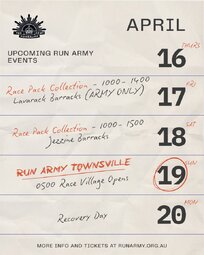 APRIL
UPCOMING RUN ARMY
EVENTS
16 THURS
Race Pack Collection - 1000-1400
Lavarack Barracks (ARMY ONLY)
17 FRI
Race Pack Collection - 1000-1500
Jezzine Barracks
18 SAT
RUN ARMY TOWNSVILLE
0500 Race Village Opens
19 SUN
Recovery Day
20 MON
MORE INFO AND TICKETS AT RUNARMY.ORG.AU